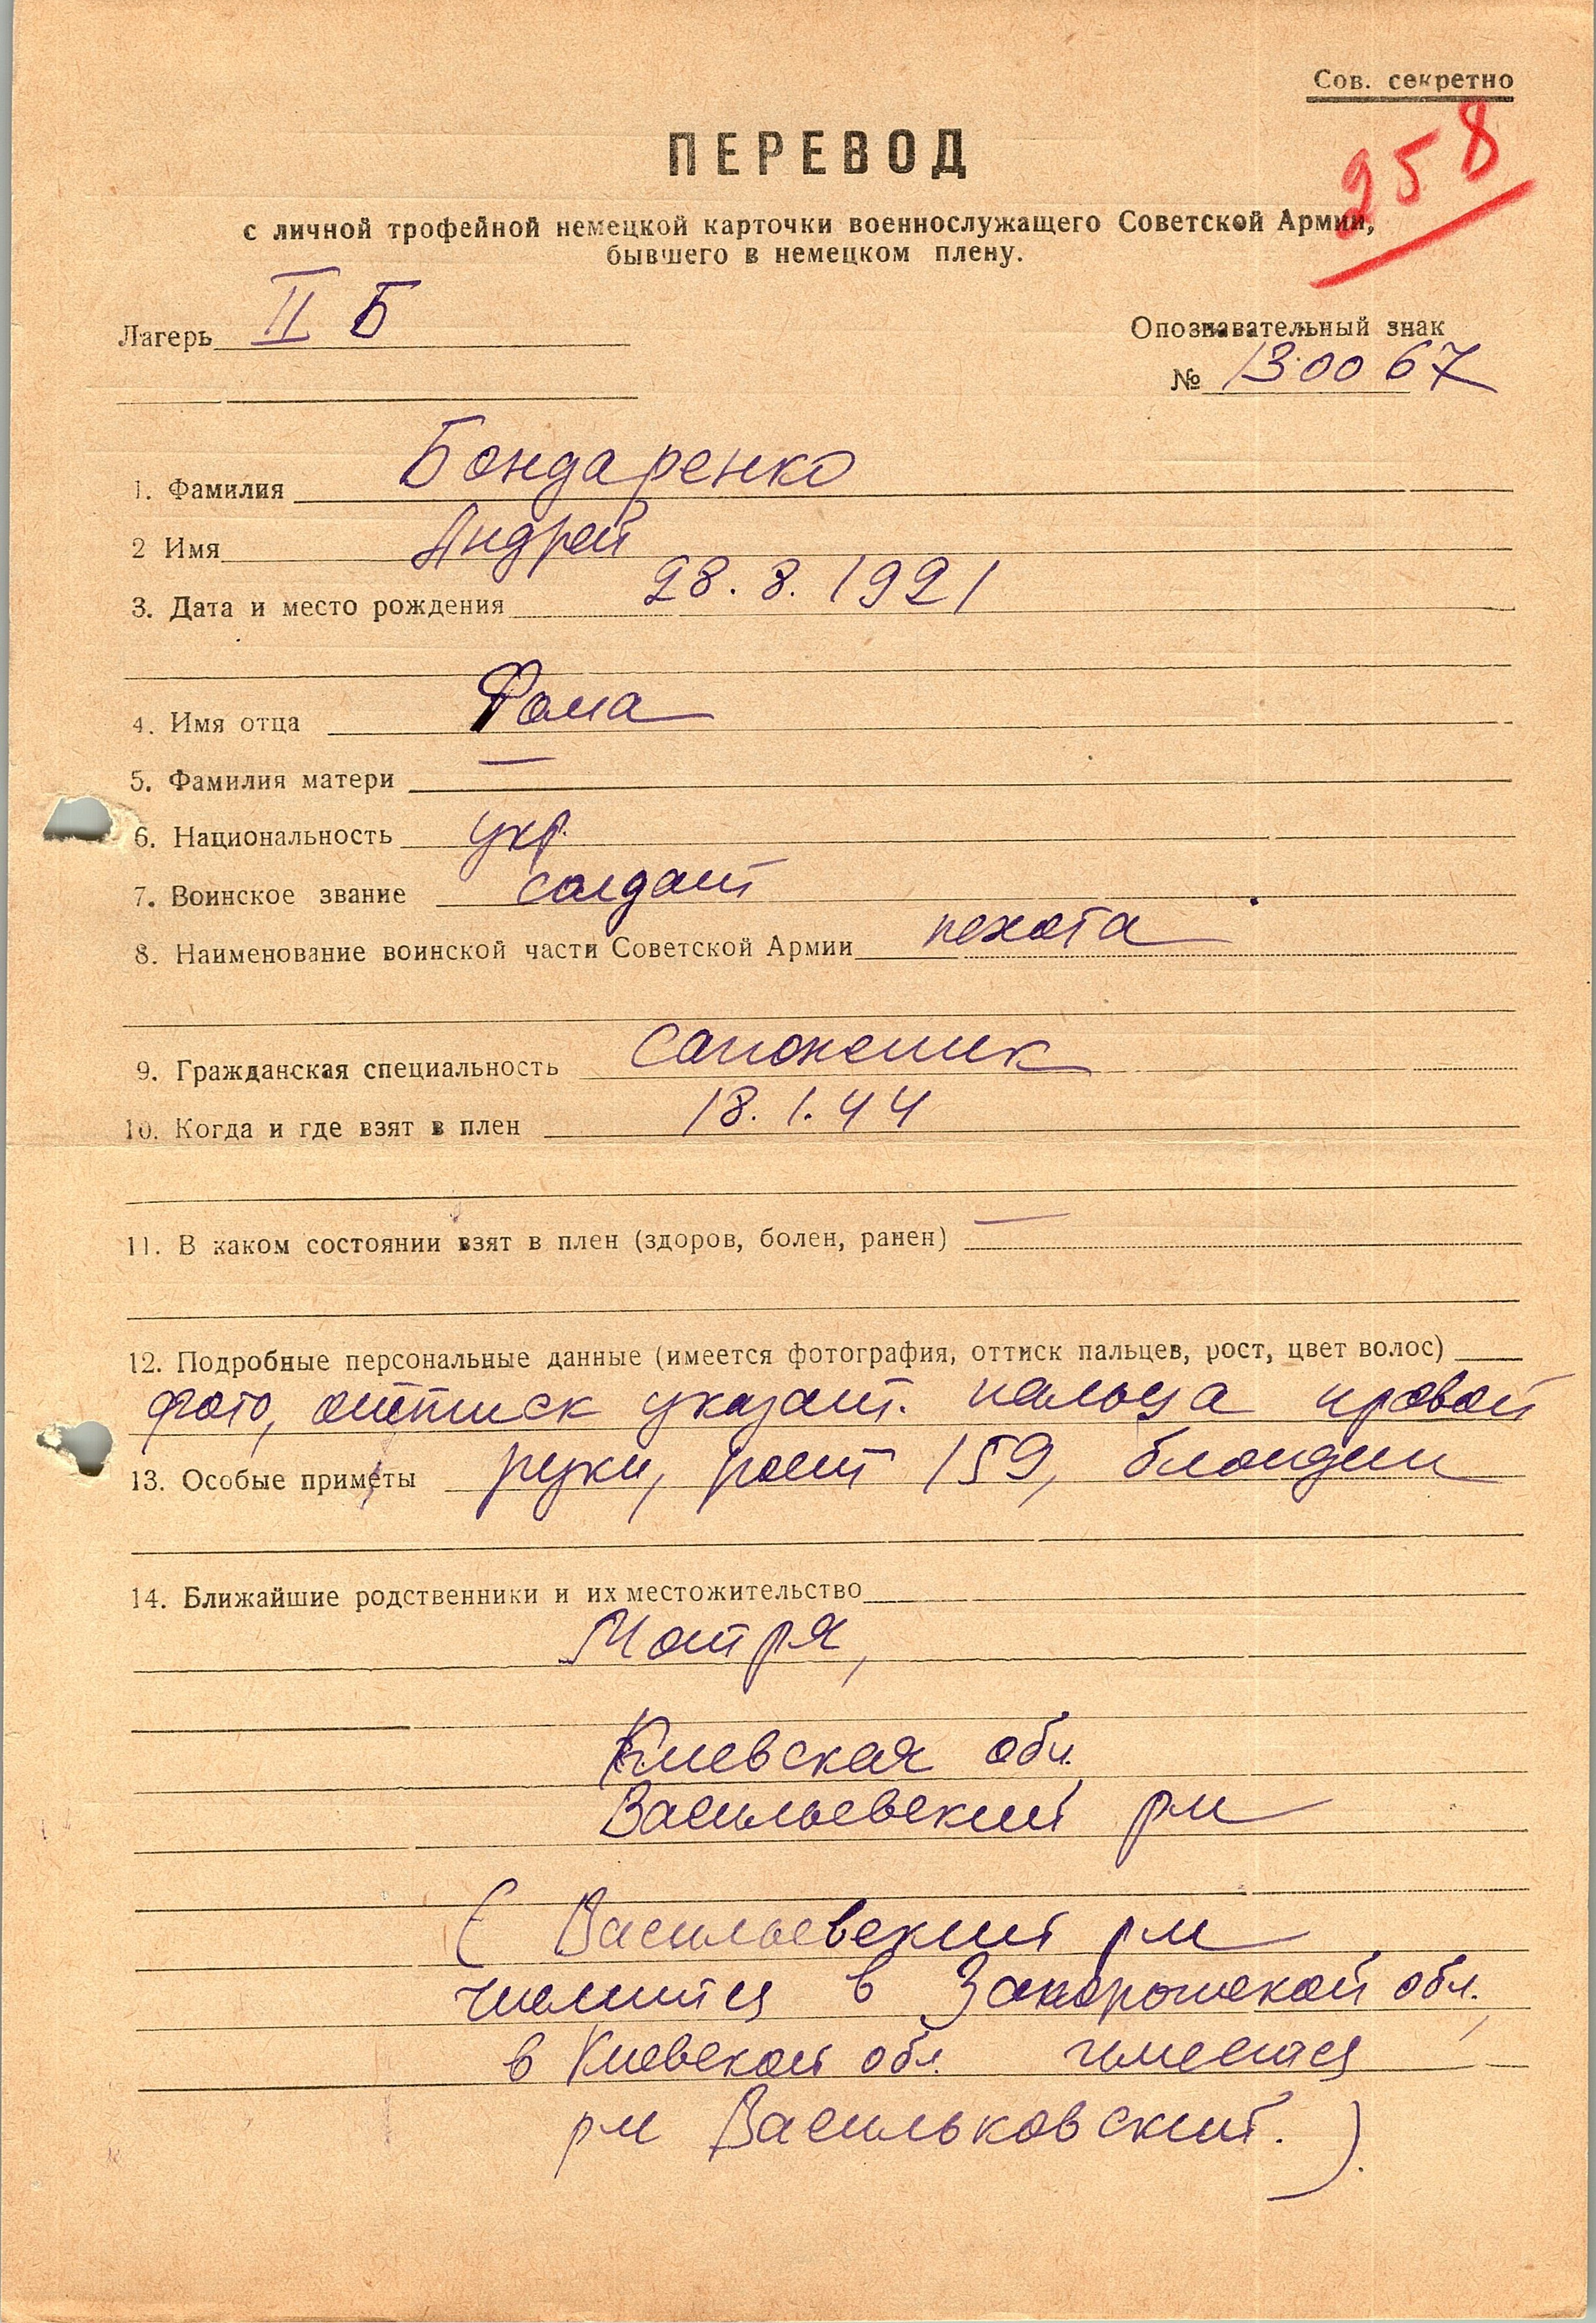 Сов. секретно
258
ПЕРЕВОД
с личной трофейной немецкой карточки военнослужащего Советской Армии,
бывшего в немецком плену.
Лагерь II Б
Опознавательный знак
№ 130067
1. Фамилия Бондаренко
2 Имя Андрей
3. Дата и место рождения 28.8.1921
4. Имя отца Фома
5. Фамилия матери —
6. Национальность укр.
7. Воинское звание солдат
8. Наименование воинской части Советской Армии пехота
9. Гражданская специальность сапожник
10. Когда и где взят в плен 18.1.44
11. В каком состоянии взят в плен (здоров, болен, ранен) —
12. Подробные персональные данные (имеется фотография, оттиск пальцев, рост, цвет волос)
фото, оттиск указат. пальца правой
13. Особые приметы руки, рост 159, блондин
14. Ближайшие родственники и их местожительство
Мотря,
Киевская обл.
Васильевский р-н
( Васильевский р-н
числится в Запорожской обл.,
в Киевской обл. имеется
р-н Васильковский. ).